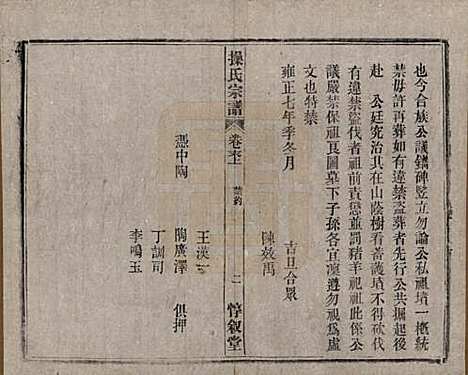 也今合族公議鐫碑竪立勿論公私祖墳一槪統
禁毋許再葬如有違禁盜葬者先行公共掘起後
赴　公廷究治其在山蔭樹看蓄護墳不得砍伐
有違禁盜伐者祖前責懲並罰豬羊祀祖此係公
議嚴禁保祖良圖墓下子孫各宜凜遵勿視爲虛
文也特禁
雍正七年季冬月　　　吉旦合衆
陳效禹
操氏宗譜　卷
禁約　二　惇敘堂
王漢一
憑中陶　陶廣澤　俱押
丁調司
李鳴玉